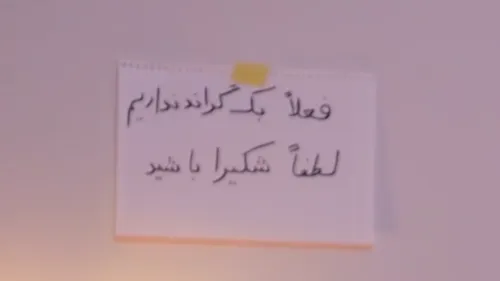 فعلاً بک گراند نداریم
لطفاً شکیرا باشید